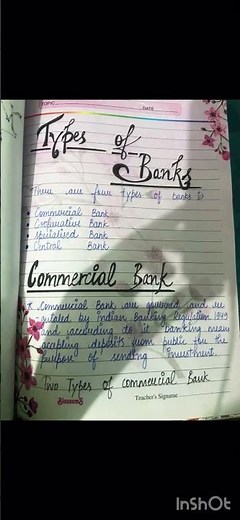 TOPIC
DATE
Types of
Banks
There are four types of banks
Commercial Bank
Cooperative Bank
Specialised Bank
Central Bank
Commercial Bank
* Commercial Bank are governed and re
gulated by Indian Banking Regulation 1949
and according to it banking means
accepting deposits from public for the
purpose of lending Investment.
Two Types of commercial Bank
Teacher's Signature
InShOt